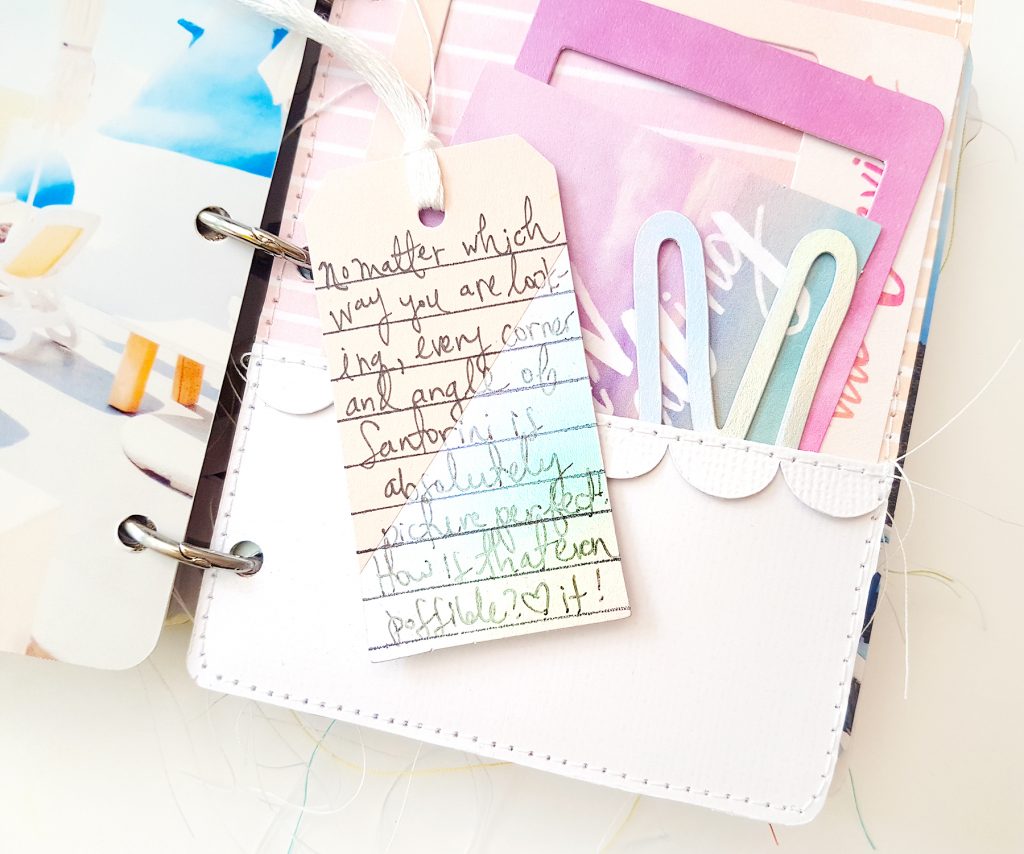 No matter which
way you are look-
ing, every corner
and angle of
Santorini is
absolutely
picture perfect!
How is that even
possible? ♡ it!